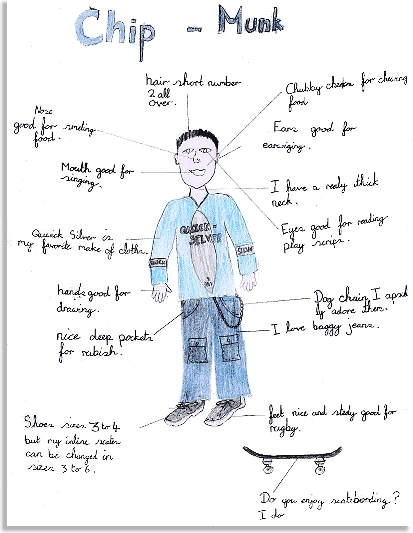 Chip - Munk
hair short number
2 all
over.
Chubby cheeks for chewing
food
Nose
good for smelling
food.
Ears good for
earwiging.
Mouth good for
singing.
I have a realy thick
neck.
Quick Silver is
my favorite make of cloths.
QUICK-
SILVER
Eyes good for reading
play scrips.
hands good for
drawing.
Dog chain I
adore them.
nice deep pockets
for rubish.
I love baggy jeans.
Shoes sizes 3 to 4
but my inline skates
can be changed in
sizes 3 to 6.
feet nice and stedy good for
rugby.
Do you enjoy scatebording?
I do